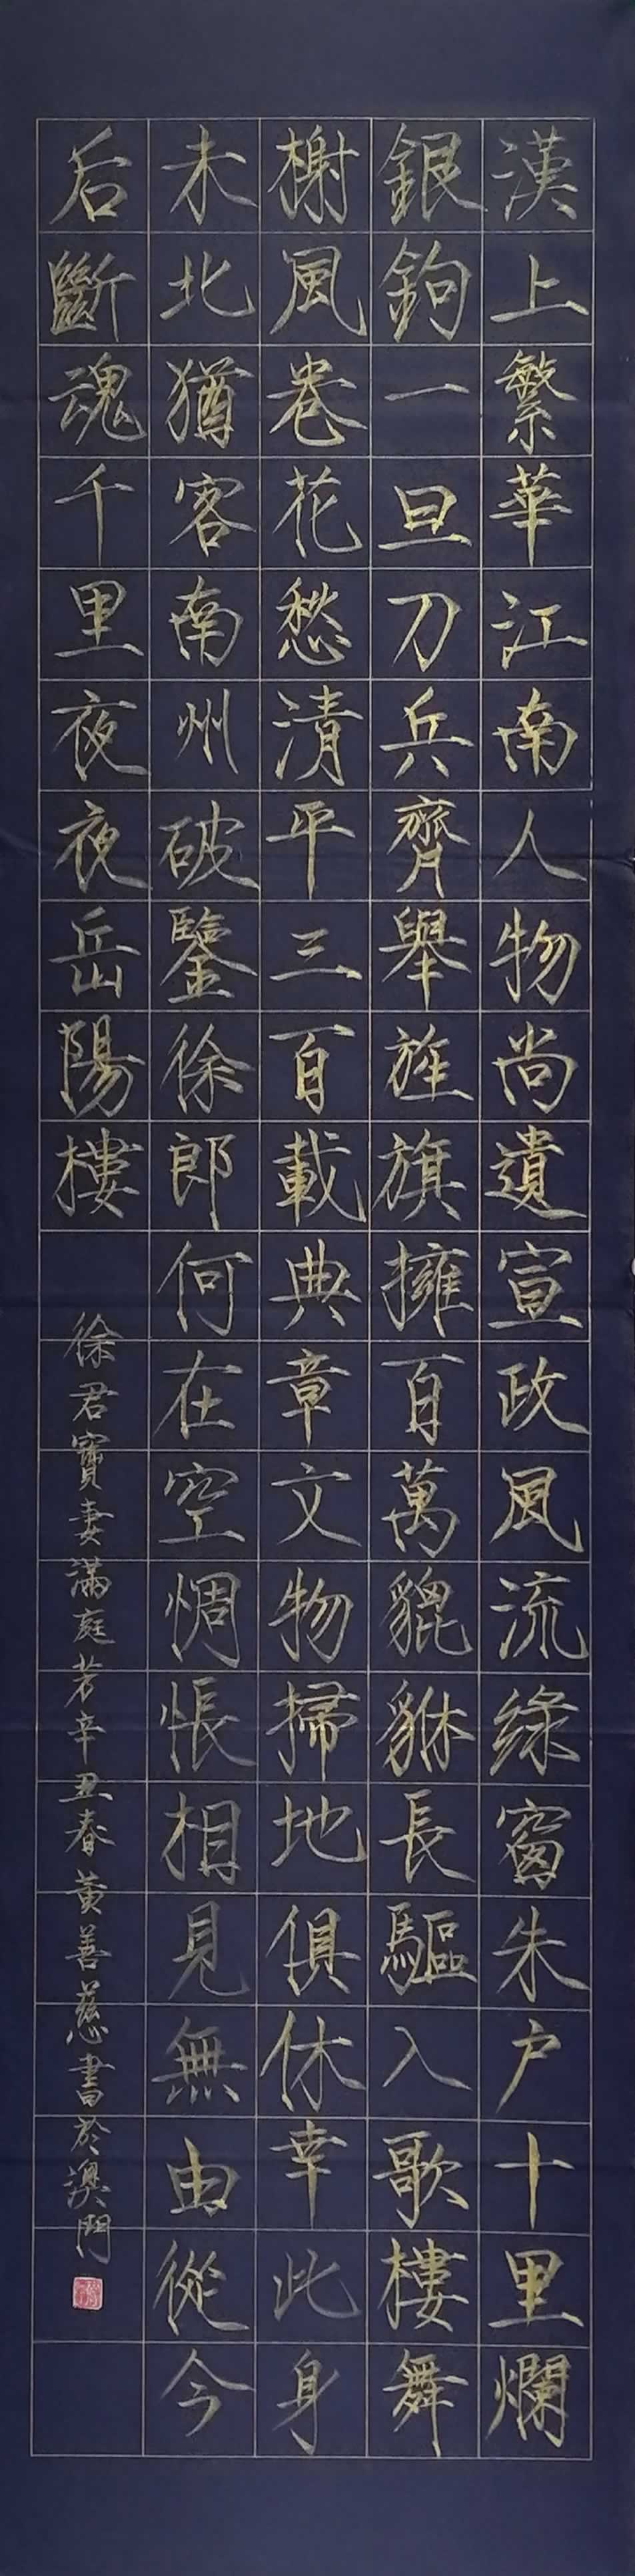 漢上繁華江南人物尚遺宣政風流綠窗朱户十里爛
銀鉤一旦刀兵齊舉旌旗擁百萬貔貅長驅入歌樓舞
榭風卷花愁清平三百載典章文物掃地俱休幸此身
未北猶客南州破鑒徐郎何在空惆悵相見無由從今
后斷魂千里夜夜岳陽樓
徐君寶妻滿庭芳辛丑春黃善慈書於澳門